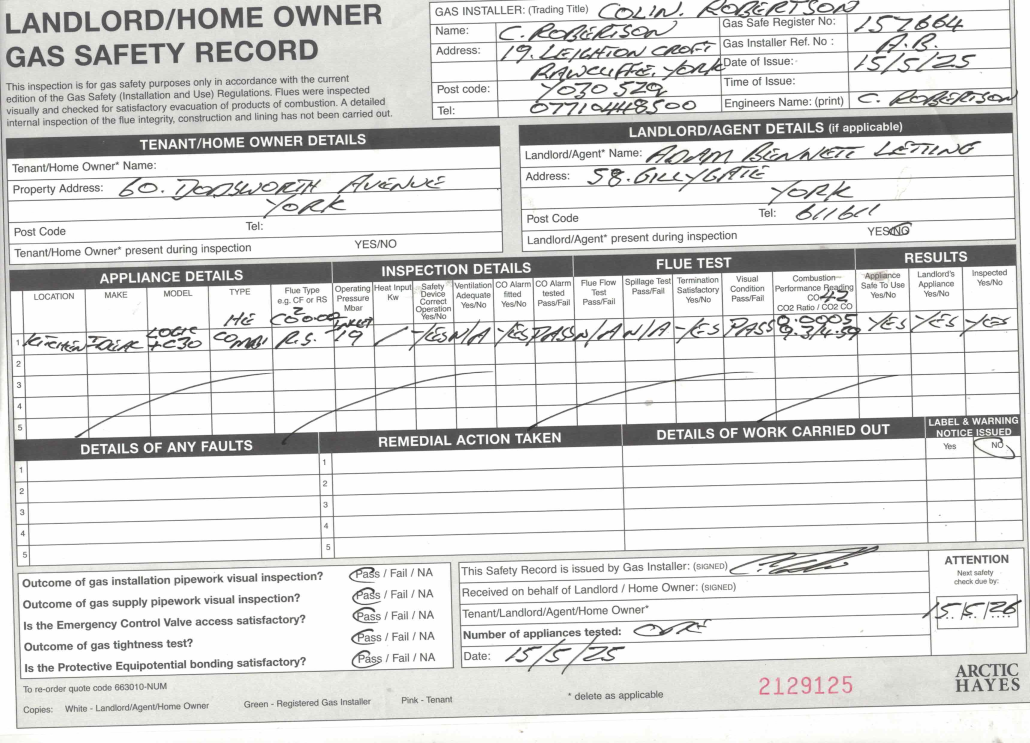 LANDLORD/HOME OWNER
GAS SAFETY RECORD
This inspection is for gas safety purposes only in accordance with the current
edition of the Gas Safety (Installation and Use) Regulations. Flues were inspected
visually and checked for satisfactory evacuation of products of combustion. A detailed
internal inspection of the flue integrity, construction and lining has not been carried out.
GAS INSTALLER: (Trading Title) COLIN. ROBERTSON
Name: C. ROBERTSON
Gas Safe Register No: 157664
Address: 19. LEIGHTON CROFT
Gas Installer Ref. No : A.B.
RAWCLIFFE. YORK
Date of Issue: 15/5/25
Post code: YO30 5
Time of Issue:
Tel: 07710448500
Engineers Name: (print) C. ROBERTSON
TENANT/HOME OWNER DETAILS
Tenant/Home Owner* Name:
Property Address: 60. DODSWORTH AVENUE
YORK
Post Code Tel:
Tenant/Home Owner* present during inspection YES/NO
LANDLORD/AGENT DETAILS (if applicable)
Landlord/Agent* Name: ADAM BENNETT LETTING
Address: 58. GILLYGATE
YORK
Post Code Tel: 611611
Landlord/Agent* present during inspection YES/NO
APPLIANCE DETAILS INSPECTION DETAILS FLUE TEST RESULTS
LOCATION MAKE MODEL TYPE Flue Type e.g. CF or RS Operating Pressure Mbar Heat Input Kw Safety Device Correct Operation Yes/No Ventilation Adequate Yes/No CO Alarm fitted Yes/No CO Alarm tested Pass/Fail Flue Flow Test Pass/Fail Spillage Test Pass/Fail Termination Satisfactory Yes/No Visual Condition Pass/Fail Combustion Performance Reading CO 42 CO2 Ratio / CO2 CO Appliance Safe To Use Yes/No Landlord's Appliance Yes/No Inspected Yes/No
1 KITCHEN IDEAL LOGIC +C30 HE COMBI R.S. INLET 19 / YES N/A YES PASS N/A N/A YES PASS 0.0005 YES YES YES
2
3
4
5
DETAILS OF ANY FAULTS REMEDIAL ACTION TAKEN DETAILS OF WORK CARRIED OUT LABEL & WARNING NOTICE ISSUED
Yes NO
1 1
2 2
3 3
4 4
5 5
Outcome of gas installation pipework visual inspection? Pass / Fail / NA
Outcome of gas supply pipework visual inspection? Pass / Fail / NA
Is the Emergency Control Valve access satisfactory? Pass / Fail / NA
Outcome of gas tightness test? Pass / Fail / NA
Is the Protective Equipotential bonding satisfactory? Pass / Fail / NA
This Safety Record is issued by Gas Installer: (SIGNED)
Received on behalf of Landlord / Home Owner: (SIGNED)
Tenant/Landlord/Agent/Home Owner*
Number of appliances tested: ONE
Date: 15/5/25
ATTENTION
Next safety
check due by:
15.5.26
To re-order quote code 663010-NUM
Copies: White - Landlord/Agent/Home Owner Green - Registered Gas Installer Pink - Tenant
* delete as applicable
2129125
ARCTIC
HAYES